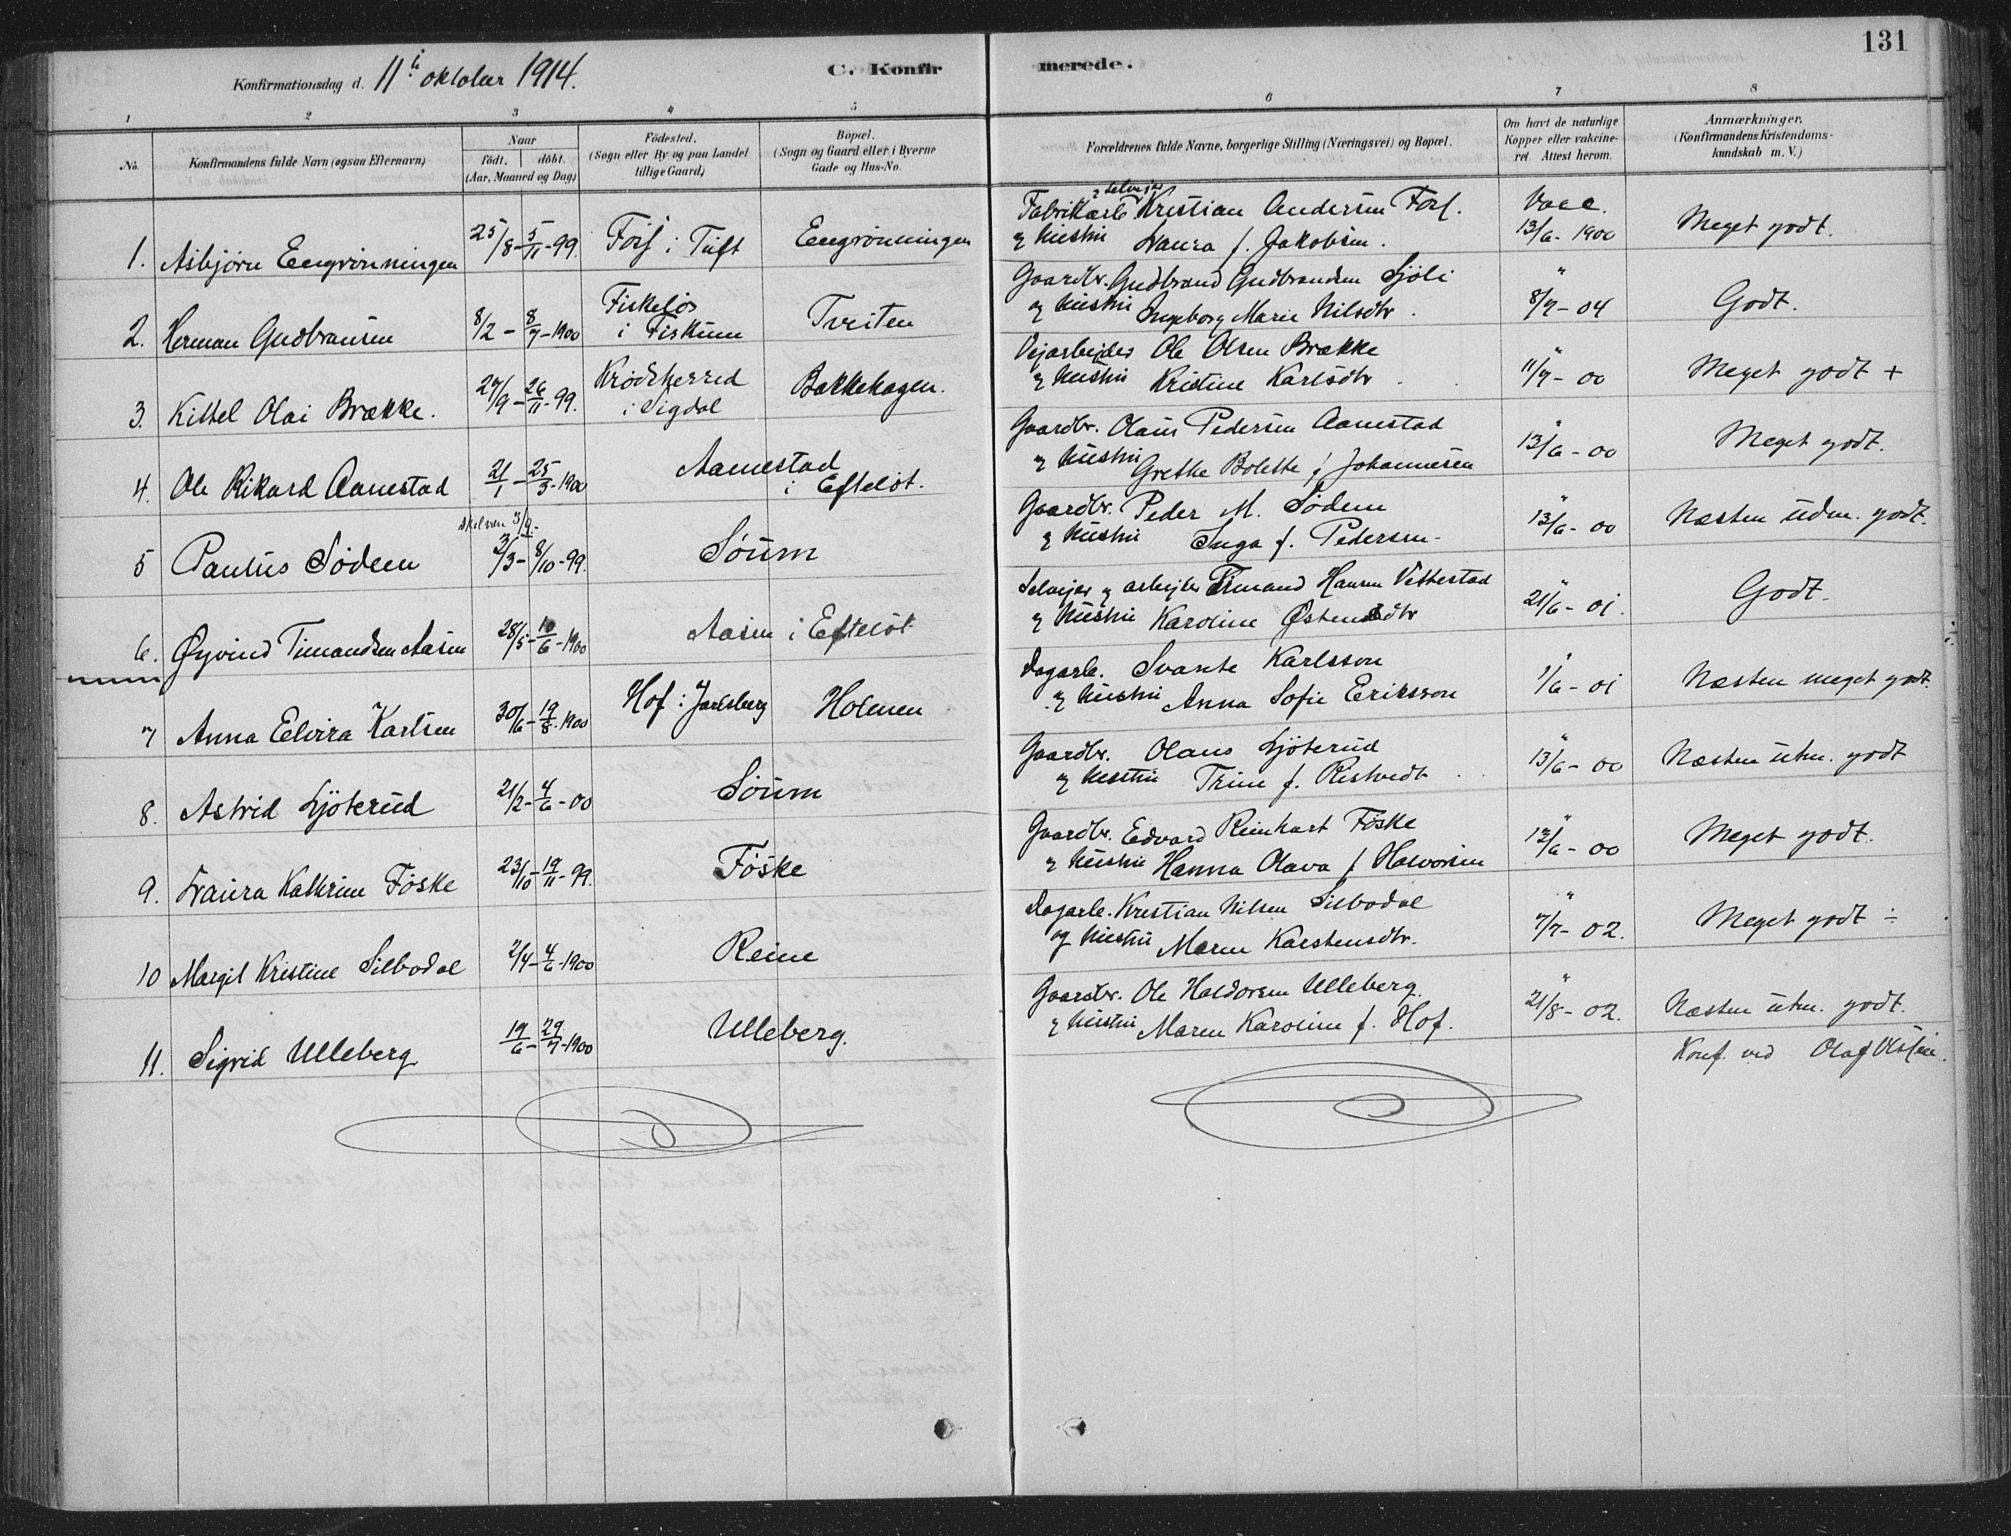 131
Konfirmationsdag d. 11te oktober 1914.
C. Konfirmerede.
1 2 3 4 5 6 7 8
No.
Konfirmandens fulde Navn (ogsaa Efternavn)
Naar
født. døbt.
(Aar, Maaned og Dag)
Fødested.
(Sogn eller By og paa Landet
tillige Gaard)
Bopæl.
(Sogn og Gaard eller i Byerne
Gade og Hus-No.
Forældrenes fulde Navne, borgerlige Stilling (Næringsvei) og Bopæl.
Om havt de naturlige
Kopper eller vakcine-
ret Attest herom.
Anmærkninger.
(Konfirmandens Kristendoms-
kundskab m. V.)
1. Asbjørn Eengrønningen 25/8 - 5/11 - 99. Foss i Tuft Eengrønningen
Fabrikarb. & selveier Kristian Andersen Foss.
& hustru Laura f. Jakobsen.
Vacc. 13/6 - 1900 Meget godt.
2. Herman Gudbransen 8/2 - 8/7 - 1900 Fiskeløs i Fiskum Tveiten
Gaardbr. Gudbrand Gudbrandsen Sjøli
og hustru Ingeborg Marie Nilsdtr.
" 8/7 - 04 Godt.
3. Kittel Olai Brække. 27/9 - 26/11 - 99. Krødsherred i Sigdal Bakkehagen.
Vejarbejder Ole Olsen Brække
& hustru Kristine Karlsdtr.
" 11/7 - 00 Meget godt +
4. Ole Rikard Aamestad 21/1 - 25/3 - 1900 Aamestad i Efteløt.
Gaardbr. Olaus Pedersen Aamestad
& hustru Grethe Bolette f. Johannesen
" 13/6 - 00 Meget godt.
5 Paulus Sødem 3/3 - 8/10 - 99. Søum
Gaardbr. Peder M. Sødem
& hustru Inga f. Pedersen
" 13/6 - 00 Næsten udm. godt.
6. Øyvind Timandsen Aasen 28/5 - 10/6 - 1900 Aasen i Efteløt
Selveier & arbejder Timand Hansen Vettestad
& hustru Karoline Østensdtr
" 21/6 - 01. Godt.
7 Anna Elvira Karlsen 30/6 - 19/8 - 1900 Hof i Jarlsberg Holmen
Dagarb. Svante Karlsson
& hustru Anna Sofie Eriksson
" 1/6 - 01 Næsten meget godt.
8. Astrid Ljøterud 21/2 - 4/6 - 00 Søum
Gaardbr. Olaus Ljøterud
& hustru Trine f. Ristvedt
" 13/6 - 00 Næsten utm. godt
9. Laura Kathrine Føske 23/10 - 19/11 - 99. Føske
Gaardbr. Edvard Reinhart Føske
& hustru Hanna Olava f. Halvorsen
" 12/6 - 00 Meget godt.
10 Margit Kristine Silbodal 2/4 - 4/6 - 1900 Reine
Dagarb. Kristian Nilsen Silbodal
og hustru Maren Karstensdtr.
" 7/7 - 02. Meget godt ÷
11. Sigrid Ulleberg 19/6 - 29/7 - 1900 Ulleberg.
Gaardbr. Ole Haldorsen Ulleberg.
& hustru Maren Karoline f. Hof.
" 21/8 - 02. Næsten utm. godt.
Konf. ved Olaf Olssen.